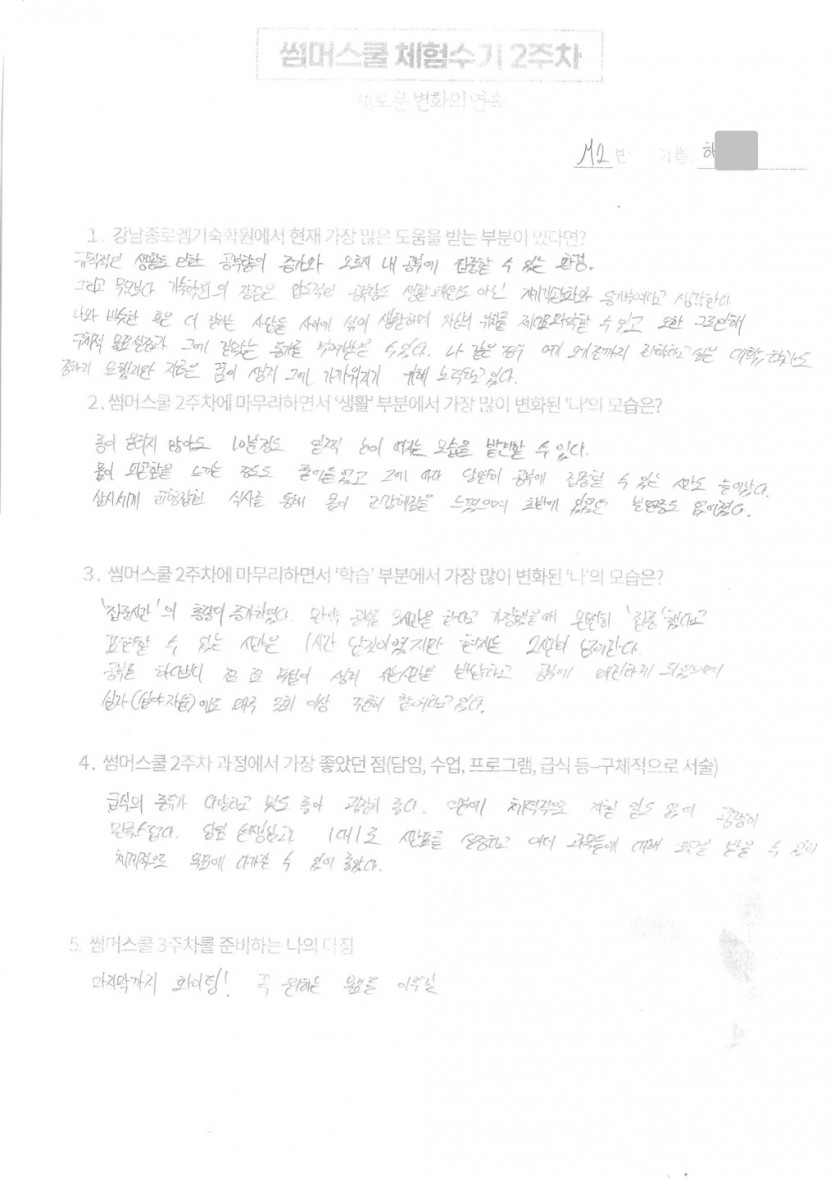 썸머스쿨 체험수기 2주차
새로운 변화의 연속
M2 반 이름: 하
1. 강남종로엠기숙학원에서 현재 가장 많은 도움을 받는 부분이 있다면?
규칙적인 생활로 인한 공부량의 증가와 오로지 내 공부에 집중할 수 있는 환경.
그리고 무엇보다 기숙학원의 장점은 압도적인 공부량도 생활패턴도 아닌 자기객관화와 동기부여라고 생각한다.
나와 비슷한 혹은 더 잘하는 사람들 사이에 섞여 생활하며 자신의 위치를 제대로 파악할 수 있고 또한 그로인해
구체적 목표설정과 그에 걸맞는 동기를 부여받을 수 있다. 나 같은 경우 여기 오기 전까지 진학하고 싶은 대학, 학과도
정하지 못했지만 지금은 꿈이 생겨 그에 가까워지기 위해 노력하고 있다.
2. 썸머스쿨 2주차에 마무리하면서 '생활' 부분에서 가장 많이 변화된 '나'의 모습은?
종이 울리지 않아도 10분정도 일찍 눈이 떠지는 모습을 발견할 수 있다.
몸이 피곤함을 느끼는 정도도 줄어들었고 그에 따라 당연히 공부에 집중할 수 있는 시간도 늘어났다.
삼시세끼 균형잡힌 식사를 통해 몸이 건강해짐을 느꼈으며 초반에 있었던 도 없어졌다.
3. 썸머스쿨 2주차에 마무리하면서 '학습' 부분에서 가장 많이 변화된 '나'의 모습은?
'집중시간'의 총량이 증가하였다. 만약 공부를 3시간을 한다고 가정했을때 온전히 '집중'했다고
표현할 수 있는 시간은 1시간 남짓이었지만 현재는 2시간이 넘어간다.
공부를 하다보니 욕심이 생겨 쉬는시간을 반납하고 공부에 매진하게 되었으며
심자(심야자습)에도 매주 3회 이상 꾸준히 참여하고 있다.
4. 썸머스쿨 2주차 과정에서 가장 좋았던 점(담임, 수업, 프로그램, 급식 등-구체적으로 서술)
급식의 종류가 다양하고 맛도 좋아 굉장히 좋다. 덕분에 체력적으로 지칠 일도 없어 굉장히
만족스럽다. 담임 선생님과 1대1로 시간표를 설정하고 여러 과목들에 대해 조언을 받을 수 있어
체계적으로 목표에 다가갈 수 있어 좋았다.
5. 썸머스쿨 3주차를 준비하는 나의 다짐
마지막까지 화이팅! 꼭 원하는 목표를 이루길